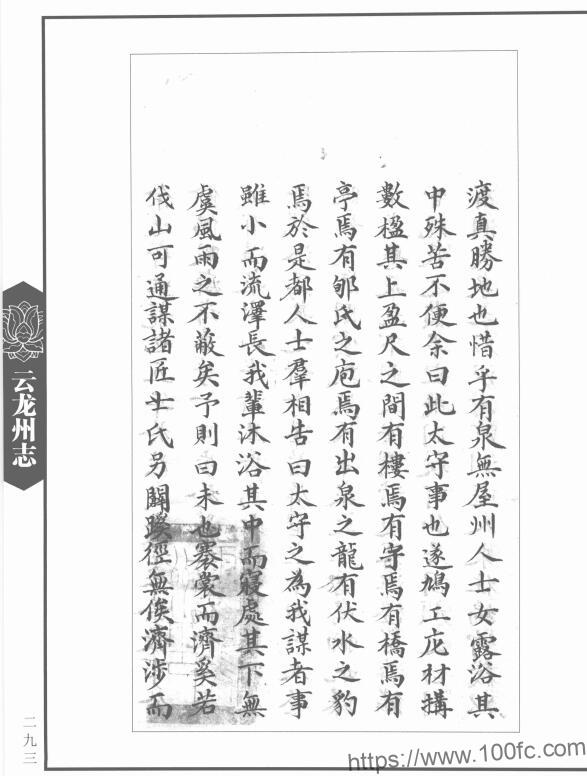 渡真勝地也惜乎有泉無屋州人士女露浴其
中殊苦不便余曰此太守事也遂鳩工庀材搆
數楹其上盈尺之間有樓焉有宇焉有橋焉有
亭焉有郇氏之庖焉有出泉之龍有伏水之豹
焉於是都人士羣相告曰太守之為我謀者事
雖小而流澤長我輩沐浴其中而寢處其下無
虞風雨之不蔽矣予則曰未也褰裳而濟奚若
伐山可通謀諸匠士氏另闢蹊徑無俟濟涉而
云龙州志
二九三
https://www.100fc.com